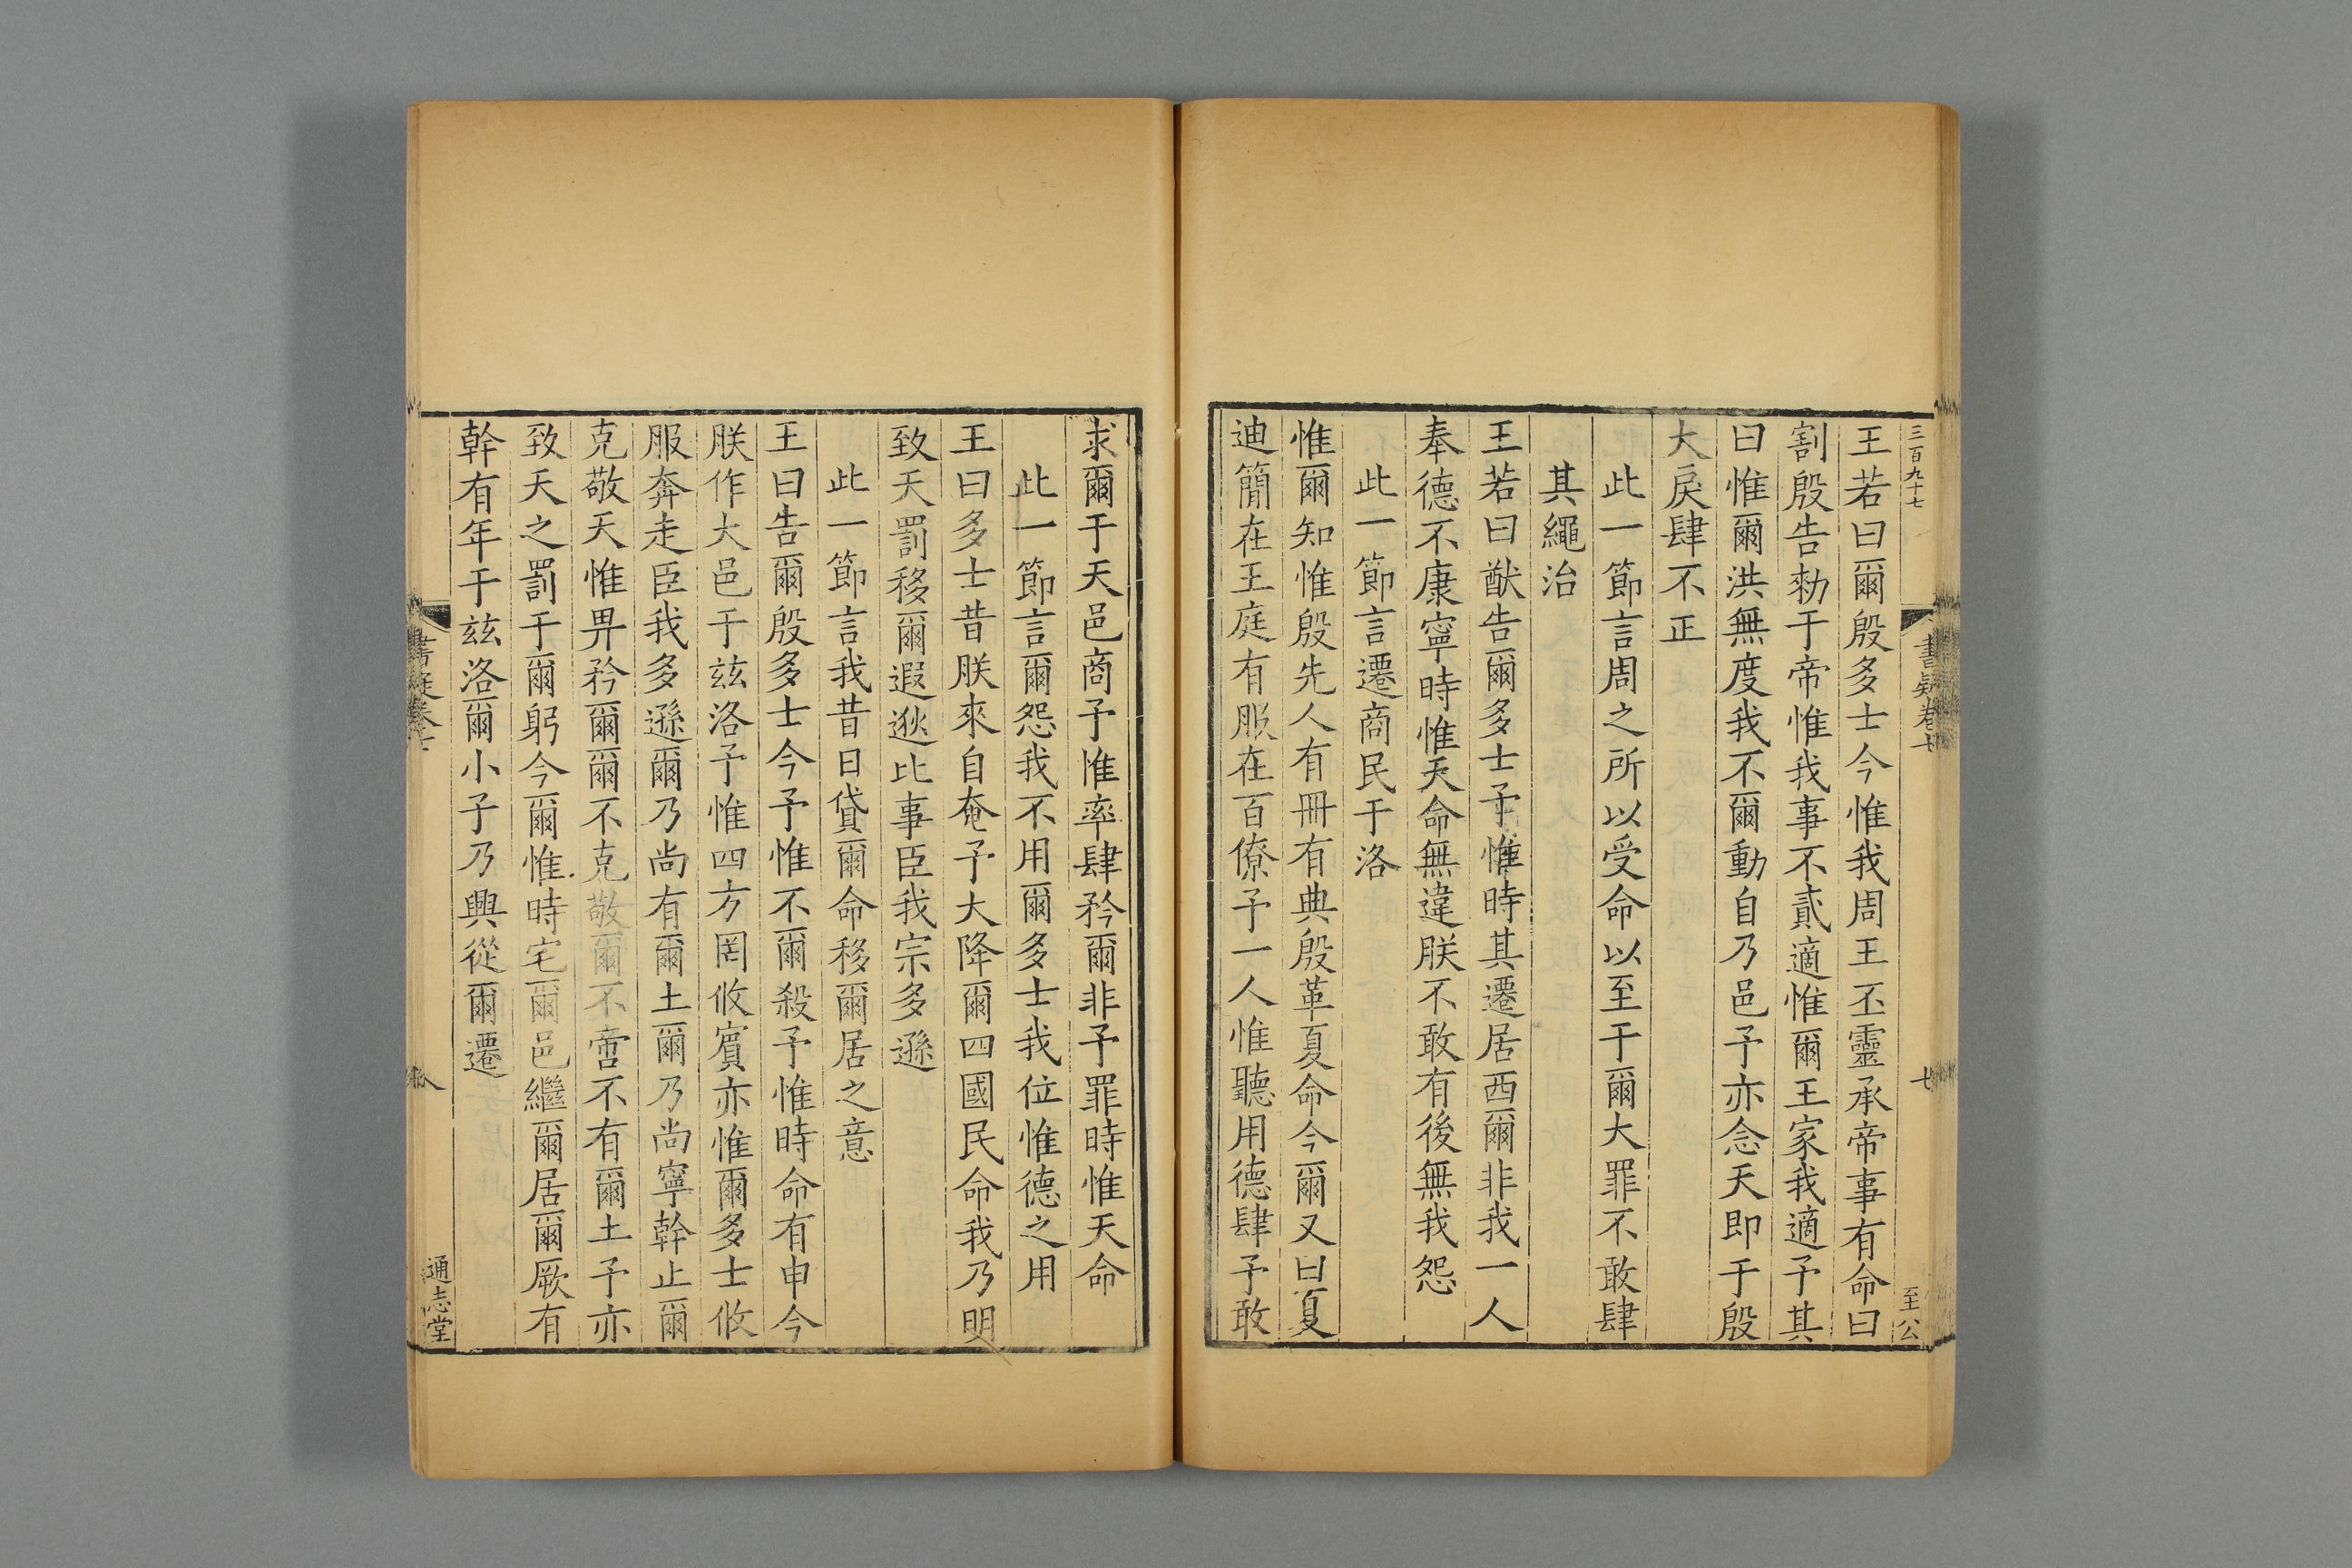 三百九十七
書疑卷七
七
至公
王若曰爾殷多士今惟我周王丕靈承帝事有命曰
割殷告勑于帝惟我事不貳適惟爾王家我適予其
曰惟爾洪無度我不爾動自乃邑予亦念天即于殷
大戾肆不正
此一節言周之所以受命以至于爾大罪不敢肆
其繩治
王若曰猷告爾多士予惟時其遷居西爾非我一人
奉德不康寧時惟天命無違朕不敢有後無我怨
此一節言遷商民于洛
惟爾知惟殷先人有冊有典殷革夏命今爾又曰夏
迪簡在王庭有服在百僚予一人惟聽用德肆予敢
求爾于天邑商予惟率肆矜爾非予罪時惟天命
此一節言爾怨我不用爾多士我位惟德之用
王曰多士昔朕來自奄予大降爾四國民命我乃明
致天罰移爾遐逖比事臣我宗多遜
此一節言我昔日貸爾命移爾居之意
王曰告爾殷多士今予惟不爾殺予惟時命有申今
朕作大邑于兹洛予惟四方罔攸賓亦惟爾多士攸
服奔走臣我多遜爾乃尚有爾土爾乃尚寧幹止爾
克敬天惟畀矜爾爾不克敬爾不啻不有爾土予亦
致天之罰于爾躬今爾惟時宅爾邑繼爾居爾厥有
幹有年于兹洛爾小子乃興從爾遷
通志堂